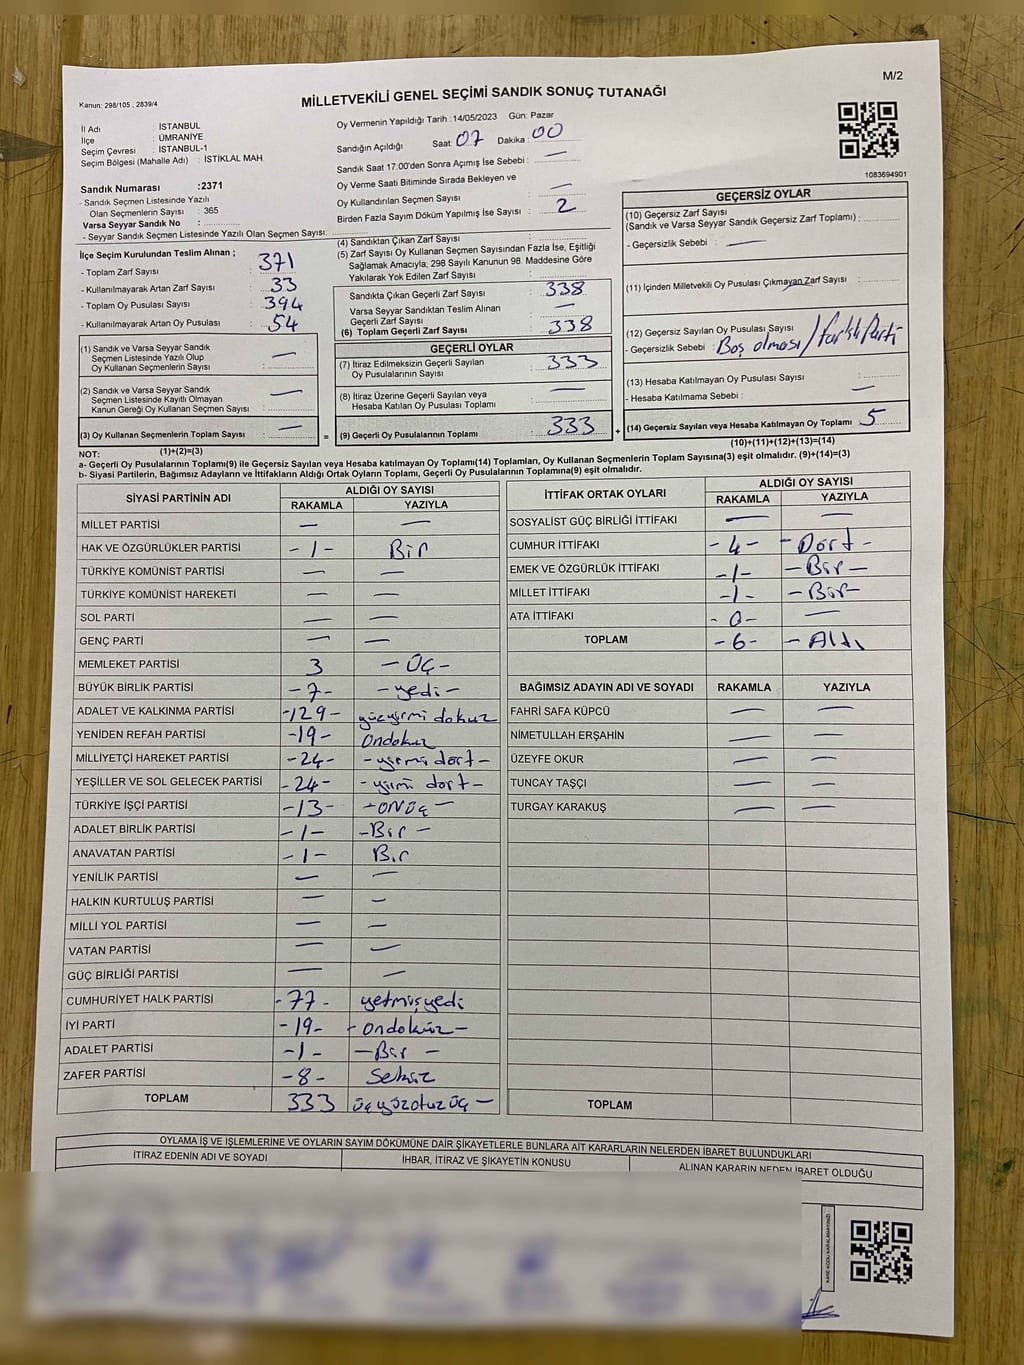 M/2
Kanun: 298/105 , 2839/4
MİLLETVEKİLİ GENEL SEÇİMİ SANDIK SONUÇ TUTANAĞI
İl Adı : İSTANBUL
İlçe : ÜMRANİYE
Seçim Çevresi : İSTANBUL-1
Seçim Bölgesi (Mahalle Adı) : İSTİKLAL MAH.
Sandık Numarası :2371
- Sandık Seçmen Listesinde Yazılı
Olan Seçmenlerin Sayısı : 365
Varsa Seyyar Sandık No :
- Seyyar Sandık Seçmen Listesinde Yazılı Olan Seçmen Sayısı:
Oy Vermenin Yapıldığı Tarih :14/05/2023 Gün: Pazar
Sandığın Açıldığı Saat 07 Dakika : 00
Sandık Saat 17.00'den Sonra Açımış İse Sebebi : —
Oy Verme Saati Bitiminde Sırada Bekleyen ve
Oy Kullandırılan Seçmen Sayısı : —
Birden Fazla Sayım Döküm Yapılmış İse Sayısı : 2
1083694901
İlçe Seçim Kurulundan Teslim Alınan ;
- Toplam Zarf Sayısı : 371
- Kullanılmayarak Artan Zarf Sayısı : 33
- Toplam Oy Pusulası Sayısı : 394
- Kullanılmayarak Artan Oy Pusulası : 54
(1) Sandık ve Varsa Seyyar Sandık
Seçmen Listesinde Yazılı Olup
Oy Kullanan Seçmenlerin Sayısı : —
(2) Sandık ve Varsa Seyyar Sandık
Seçmen Listesinde Kayıtlı Olmayan
Kanun Gereği Oy Kullanan Seçmen Sayısı : —
(3) Oy Kullanan Seçmenlerin Toplam Sayısı : —
(1)+(2)=(3)
(4) Sandıktan Çıkan Zarf Sayısı :
(5) Zarf Sayısı Oy Kullanan Seçmen Sayısından Fazla İse, Eşitliği
Sağlamak Amacıyla, 298 Sayılı Kanunun 98. Maddesine Göre
Yakılarak Yok Edilen Zarf Sayısı :
Sandıkta Çıkan Geçerli Zarf Sayısı : 338
Varsa Seyyar Sandıktan Teslim Alınan
Geçerli Zarf Sayısı : —
(6) Toplam Geçerli Zarf Sayısı : 338
GEÇERLİ OYLAR
(7) İtiraz Edilmeksizin Geçerli Sayılan
Oy Pusulalarının Sayısı : 333
(8) İtiraz Üzerine Geçerli Sayılan veya
Hesaba Katılan Oy Pusulası Toplamı : —
= (9) Geçerli Oy Pusulalarının Toplamı : 333 +
GEÇERSİZ OYLAR
(10) Geçersiz Zarf Sayısı
(Sandık ve Varsa Seyyar Sandık Geçersiz Zarf Toplamı) :
- Geçersizlik Sebebi : —
(11) İçinden Milletvekili Oy Pusulası Çıkmayan Zarf Sayısı :
(12) Geçersiz Sayılan Oy Pusulası Sayısı
- Geçersizlik Sebebi : Boş olması / farklı Parti
(13) Hesaba Katılmayan Oy Pusulası Sayısı :
- Hesaba Katılmama Sebebi : —
(14) Geçersiz Sayılan veya Hesaba Katılmayan Oy Toplamı : 5
(10)+(11)+(12)+(13)=(14)
NOT:
a- Geçerli Oy Pusulalarının Toplamı(9) ile Geçersiz Sayılan veya Hesaba katılmayan Oy Toplamı(14) Toplamları, Oy Kullanan Seçmenlerin Toplam Sayısına(3) eşit olmalıdır. (9)+(14)=(3)
b- Siyasi Partilerin, Bağımsız Adayların ve İttifakların Aldığı Ortak Oyların Toplamı, Geçerli Oy Pusulalarının Toplamına(9) eşit olmalıdır.
SİYASİ PARTİNİN ADI ALDIĞI OY SAYISI
RAKAMLA YAZIYLA
MİLLET PARTİSİ — —
HAK VE ÖZGÜRLÜKLER PARTİSİ -1- Bir
TÜRKİYE KOMÜNİST PARTİSİ — —
TÜRKİYE KOMÜNİST HAREKETİ — —
SOL PARTİ — —
GENÇ PARTİ — —
MEMLEKET PARTİSİ 3 -Üç-
BÜYÜK BİRLİK PARTİSİ -7- -yedi-
ADALET VE KALKINMA PARTİSİ -129- yüzyirmi dokuz
YENİDEN REFAH PARTİSİ -19- Ondokuz
MİLLİYETÇİ HAREKET PARTİSİ -24- -yirmi dört-
YEŞİLLER VE SOL GELECEK PARTİSİ -24- -yirmi dört-
TÜRKİYE İŞÇİ PARTİSİ -13- -onüç-
ADALET BİRLİK PARTİSİ -1- -Bir-
ANAVATAN PARTİSİ -1- Bir
YENİLİK PARTİSİ — —
HALKIN KURTULUŞ PARTİSİ — —
MİLLİ YOL PARTİSİ — —
VATAN PARTİSİ — —
GÜÇ BİRLİĞİ PARTİSİ — —
CUMHURİYET HALK PARTİSİ -77- yetmişyedi
İYİ PARTİ -19- -ondokuz-
ADALET PARTİSİ -1- -Bir-
ZAFER PARTİSİ -8- Sekiz
TOPLAM 333 üçyüzotuzüç-
İTTİFAK ORTAK OYLARI ALDIĞI OY SAYISI
RAKAMLA YAZIYLA
SOSYALİST GÜÇ BİRLİĞİ İTTİFAKI — —
CUMHUR İTTİFAKI -4- -Dört-
EMEK VE ÖZGÜRLÜK İTTİFAKI -1- -Bir-
MİLLET İTTİFAKI -1- -Bir-
ATA İTTİFAKI -0- —
TOPLAM -6- -Altı
BAĞIMSIZ ADAYIN ADI VE SOYADI RAKAMLA YAZIYLA
FAHRİ SAFA KÜPCÜ — —
NİMETULLAH ERŞAHİN — —
ÜZEYFE OKUR — —
TUNCAY TAŞÇI — —
TURGAY KARAKUŞ — —
TOPLAM
OYLAMA İŞ VE İŞLEMLERİNE VE OYLARIN SAYIM DÖKÜMÜNE DAİR ŞİKAYETLERLE BUNLARA AİT KARARLARIN NELERDEN İBARET BULUNDUKLARI
İTİRAZ EDENİN ADI VE SOYADI İHBAR, İTİRAZ VE ŞİKAYETİN KONUSU ALINAN KARARIN NEDEN İBARET OLDUĞU